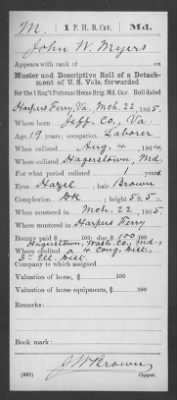 M. 1 P. H. B. Cav. Md.
John W. Myers
Appears with rank of
Muster and Descriptive Roll of a Detachment
of U. S. Vols. forwarded
for the 1 Reg't Potomac Home Brig. Md. Cav. Roll dated
Harpers Ferry, Va, Mch. 22, 1865.
Where born Jeff. Co., Va
Age 19 years; occupation Laborer
When enlisted Aug. 4, 1864.
Where enlisted Hagerstown, Md.
For what period enlisted 1 years.
Eyes Hazel; hair Brown
Complexion Dk; height 5 ft. 5 in.
When mustered in Mch. 22, 1865
Where mustered in Harpers Ferry
Bounty paid $ 100; due $ 100 100
Hagerstown, Wash. Co., Md.,
Where credited 4 Cong. Dist.,
3rd Ell. Dist.
Company to which assigned
Valuation of horse, $ 100
Valuation of horse equipments, $ 100
Remarks:
Book mark:
J W Brown
(339) Copyist.